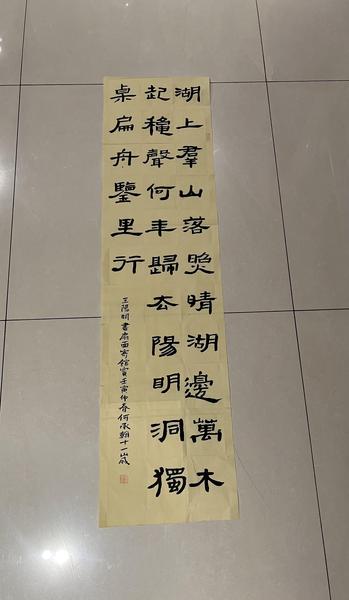 湖上羣山落照晴湖邊萬木
起穐聲何年歸去陽明洞獨
桌扁舟鑒里行
王陽明書扇面寄館賓壬寅仲春何承翰十一歲